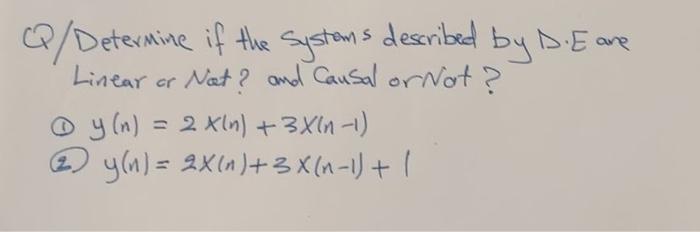 Q/Determine if the Systems described by D.E are
Linear or Not? and Causal or Not?
① y(n) = 2 X(n) + 3X(n-1)
② y(n) = 2X(n) + 3X(n-1) + 1